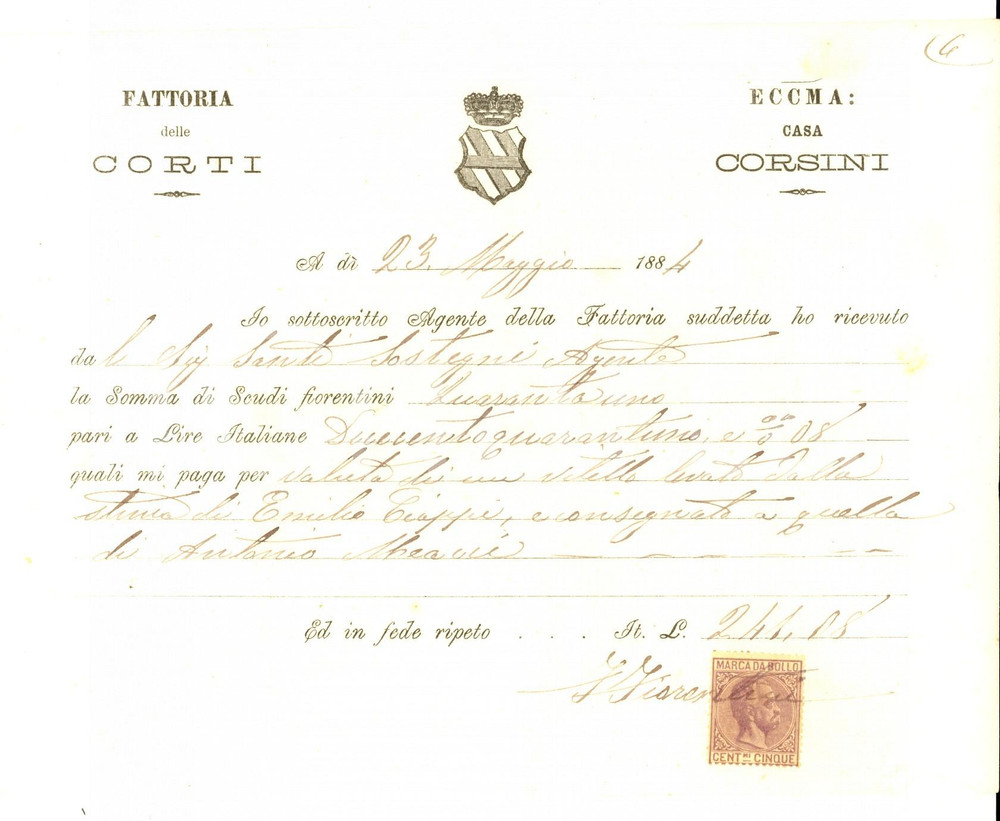 6
FATTORIA
delle
CORTI
ECCMA:
CASA
CORSINI
A dì 23. Maggio 1884
Io sottoscritto Agente della Fattoria suddetta ho ricevuto
dal Sig Santi Sostegni Agente
la Somma di Scudi fiorentini Quarantauno
pari a Lire Italiane Duecentoquarantuno, e 08
quali mi paga per valuta di un vitello levato dalla
stima di Emilio Ciappi, e consegnato a quella
di Antonio
Ed in fede ripeto . . . It. L. 241,08
Fiorentini
MARCA DA BOLLO
CENT.MI CINQUE